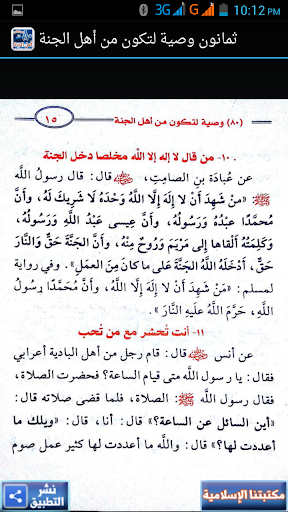 3G 10:12 PM
ثمانون وصية لتكون من أهل الجنة
(٨٠) وصية لتكون من أهل الجنة
١٥
١٠- من قال لا إله إلا الله مخلصا دخل الجنة
عن عُبَادَة بنِ الصامِتِ، ﷺ قال: قال رسولُ اللَّه
ﷺ: «مَنْ شَهِدَ أَنْ لا إِلَهَ إِلَّا اللَّهُ وَحْدَهُ لَا شَرِيكَ لَهُ، وأَنَّ
مُحمَّدًا عبْدُهُ وَرَسُولُهُ، وأَنَّ عِيسى عَبْدُ اللَّهِ وَرَسُولُهُ،
وَكَلِمَتُهُ أَلْقاها إِلى مَرْيَمَ وَرُوحٌ مِنْهُ، وأَنَّ الجَنَّةَ حَقٌّ وَالنَّارَ
حَقٌّ، أَدْخَلَهُ اللَّهُ الجَنَّةَ عَلى ما كانَ مِنَ العمَلِ». وفي رواية
لمسلم: «مَنْ شَهِدَ أَنْ لا إِلَهَ إِلَّا اللَّهُ، وأَنَّ مُحَمَّدًا رسُولُ
اللَّهِ، حَرَّمَ اللَّهُ علَيهِ النَّارَ».
١١- أنت تُحشر مع من تُحب
عن أنس ﷺ قال: قام رجل من أهل البادية أعرابي
فقال: يا رسول الله متى قيام الساعة؟ فحضرت الصلاة،
فقام رسول الله ﷺ، إلى الصلاة، فلما قضى صلاته قال:
«أين السائل عن الساعة؟» قال: أنا، قال: «ويلك ما
أعددت لها؟» قال: والله ما أعددت لها كثير عمل صوم
نشر
التطبيق
مكتبتنا الإسلامية